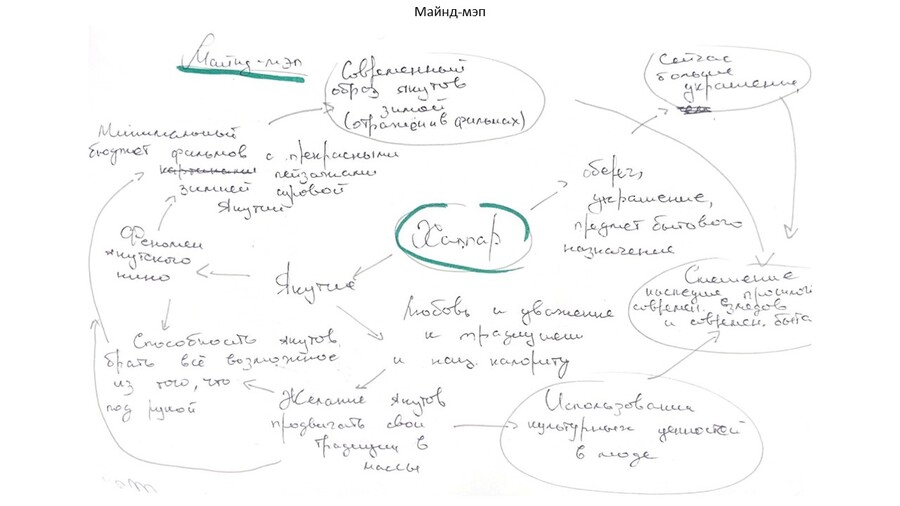 Майнд-мэп
Майнд-мэп
Современный
образ якутов
зимой
(отражен в фильмах)
Сейчас
больше
украшение
Минимальный
бюджет фильмов с прекрасными
картинами пейзажами
зимней суровой
Якутии
оберег,
украшение,
предмет бытового
назначение
Феномен
якутского
кино
Якутия
Любовь и уважение
к традициям
и нац. калориту
Смешение
наследие
современ.
и современ. быта
Способность якутов
брать всё возможное
из того, что
под рукой
Желание якутов
продвигать свои
традиции в
массы
Использования
культурных ценностей
в моде